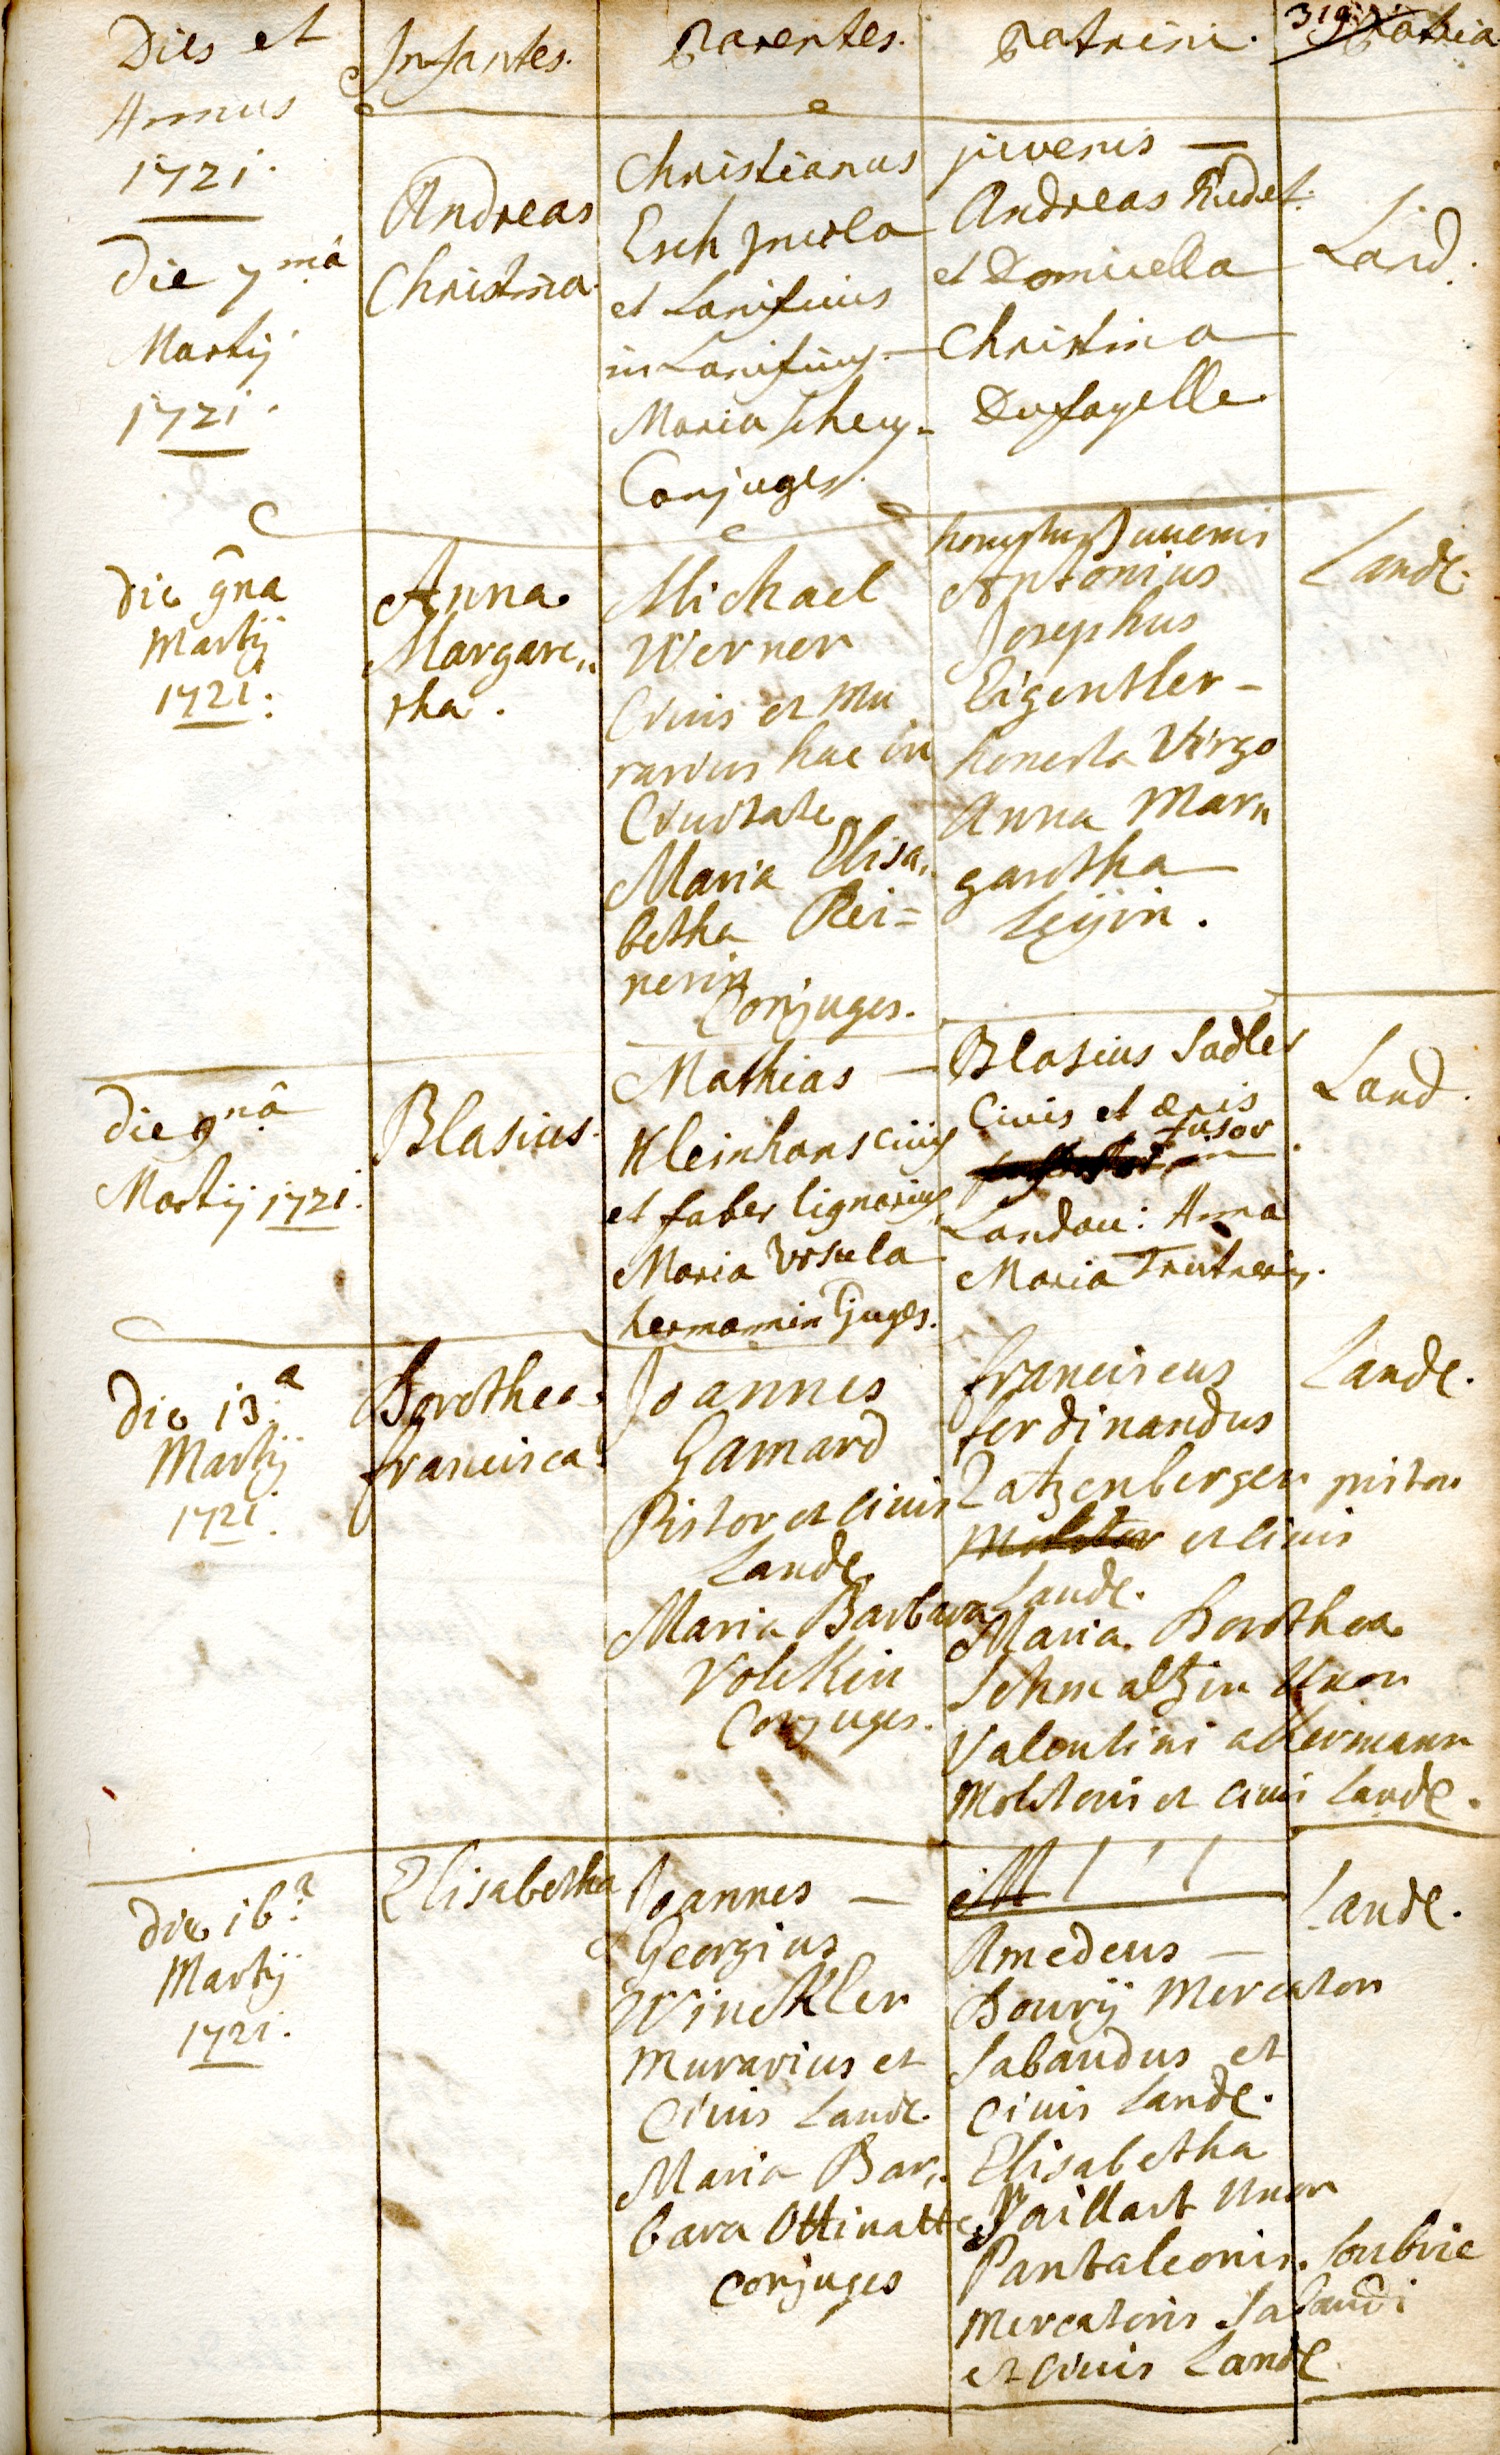 Dies et
Annus
1721.
Infantes.
Parentes.
Patrini.
319.
Patria
die 7mâ
Martij
1721.
Andreas
Christina.
Christianus
Esch Incola
et Lanificius
in
Maria
Conjuges.
juvenis —
Andreas
et Domicella
Christina
Dufayelle.
Land.
die 9na
Martij
1721.
Anna
Margare„
tha.
Michael
Werner
Civis et Mu
rarius hac in
Civitate
Maria Elisa„
betha Rei=
nerin
Conjuges.
honestus Juvenis
Antonius
Josephus
Eigentler -
honesta Virgo
Anna Mar„
garetha
Leÿin.
Lande.
die 9nâ
Martij 1721.
Blasius.
Mathias —
Kleinhans civis
et faber lignarius
Maria Ursula
hermannin Cjuges.
Blasius Sadler
Civis et æris
fusor
Landau: Anna
Maria
Land.
die 13.a
Martij
1721.
Dorothea
francisca.
Joannes
Gamard
Pistor et civis
Lande.
Maria Barbara
Volckin
Conjuges.
franciscus
ferdinandus
Zatzenberger pistor
Molitor et civis
Lande.
Maria Dorothea
Schmaltzin Uxor
Valentini ackermann
Molitoris et civis Lande.
Lande.
die 16.a
Martij
1721.
Elisabetha
Joannes —
Georgius
Winckler
Murarius et
Civis Lande.
Maria Bar„
bara Ottinatte
Conjuges
Amedeus —
Dourij Mercator
Sabaudus et
Civis Lande.
Elisabetha
Vaillart Uxor
Pantaleonis. Soubrie
Mercatoris Sabaudi
et civis Lande
Lande.